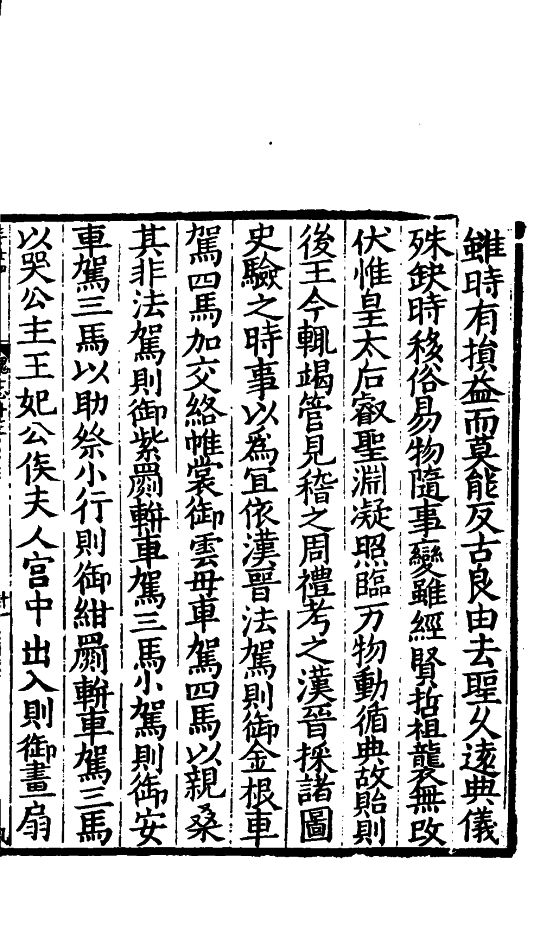 雖時有損益而莫能反古良由去聖乆遠典儀
殊缺時移俗易物隨事變雖經賢哲祖襲無改
伏惟皇太后叡聖淵凝照臨万物動循典故貽則
後王今輒竭管見稽之周禮考之漢晉採諸圖
史驗之時事以爲冝依漢晉法駕則御金根車
駕四馬加交絡帷裳御雲母車駕四馬以親桑
其非法駕則御紫罽軿車駕三馬小駕則御安
車駕三馬以助祭小行則御紺罽軿車駕三馬
以哭公主王妃公侯夫人宮中出入則御畫扇